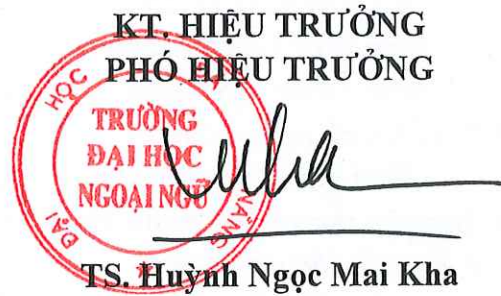 KT. HIỆU TRƯỞNG
PHÓ HIỆU TRƯỞNG
ĐẠI HỌC ĐÀ NẴNG
TRƯỜNG
ĐẠI HỌC
NGOẠI NGỮ
TS. Huỳnh Ngọc Mai Kha